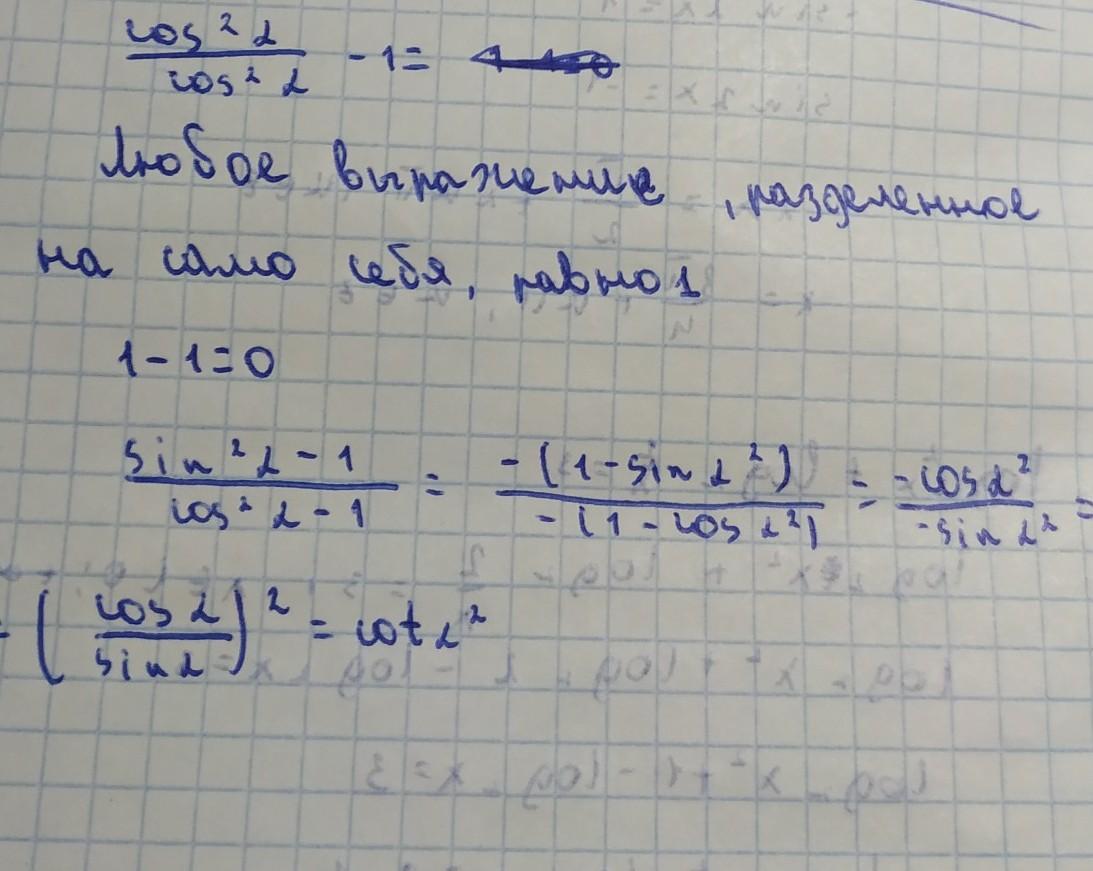 cos² α / cos² α - 1 =
Любое выражение, разделенное
на само себя, равно 1
1 - 1 = 0
sin² α - 1 / cos² α - 1 = -(1 - sin α²) / -(1 - cos α²) = -cos α² / -sin α² =
(cos α / sin α)² = cot α²